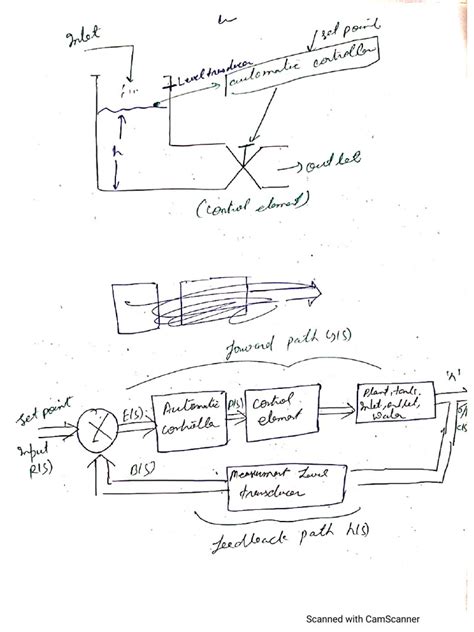 Inlet
set point
Level transducer
automatic controller
h
outlet
(control element)
forward path G(S)
'h'
set point
E(S)
Automatic
controller
P(S)
Control
element
Plant, tank,
Inlet, outlet,
water
C(S)
Input
R(S)
B(S)
Measurment Level
transducer
feedback path h(S)
Scanned with CamScanner